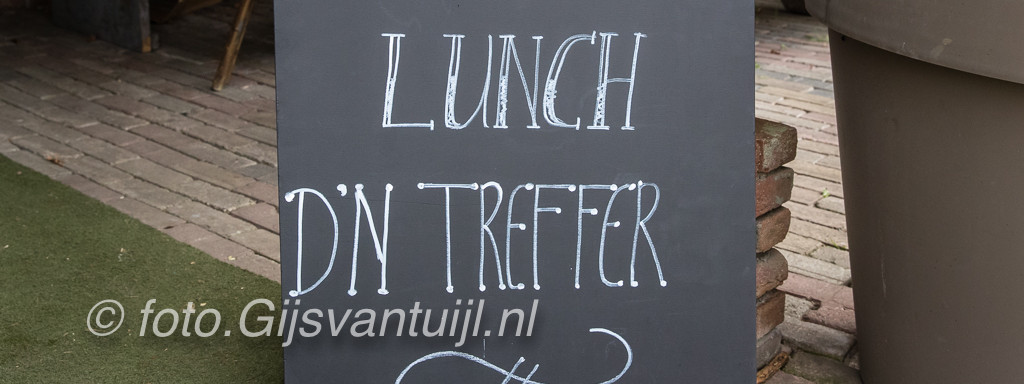 LUNCH
D'N TREFFER
© foto.Gijsvantuijl.nl